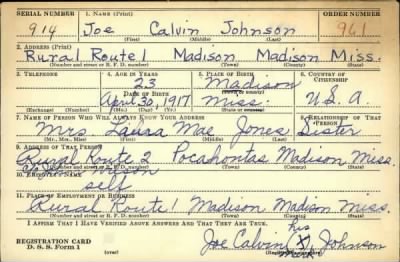 SERIAL NUMBER 1. NAME (Print) ORDER NUMBER
914 Joe Calvin Johnson 961
(First) (Middle) (Last)
2. ADDRESS (Print)
Rural Route 1 Madison Madison Miss.
(Number and street or R. F. D. number) (Town) (County) (State)
3. TELEPHONE 4. AGE IN YEARS 5. PLACE OF BIRTH 6. COUNTRY OF CITIZENSHIP
23 Madison
DATE OF BIRTH (Town or county)
April 30, 1917 Miss. U.S.A.
(Exchange) (Number) (Mo.) (Day) (Yr.) (State or country)
7. NAME OF PERSON WHO WILL ALWAYS KNOW YOUR ADDRESS 8. RELATIONSHIP OF THAT PERSON
Mrs. Laura Mae Jones Sister
(Mr., Mrs., Miss) (First) (Middle) (Last)
9. ADDRESS OF THAT PERSON
Rural Route 2 Pocahontas Madison Miss.
(Number and street or R. F. D. number) (Town) (County) (State)
10. EMPLOYER'S NAME
self
11. PLACE OF EMPLOYMENT OR BUSINESS
Rural Route 1 Madison, Madison Miss.
(Number and street or R. F. D. number) (Town) (County) (State)
I AFFIRM THAT I HAVE VERIFIED ABOVE ANSWERS AND THAT THEY ARE TRUE.
his
REGISTRATION CARD Joe Calvin (X) Johnson
D. S. S. Form 1